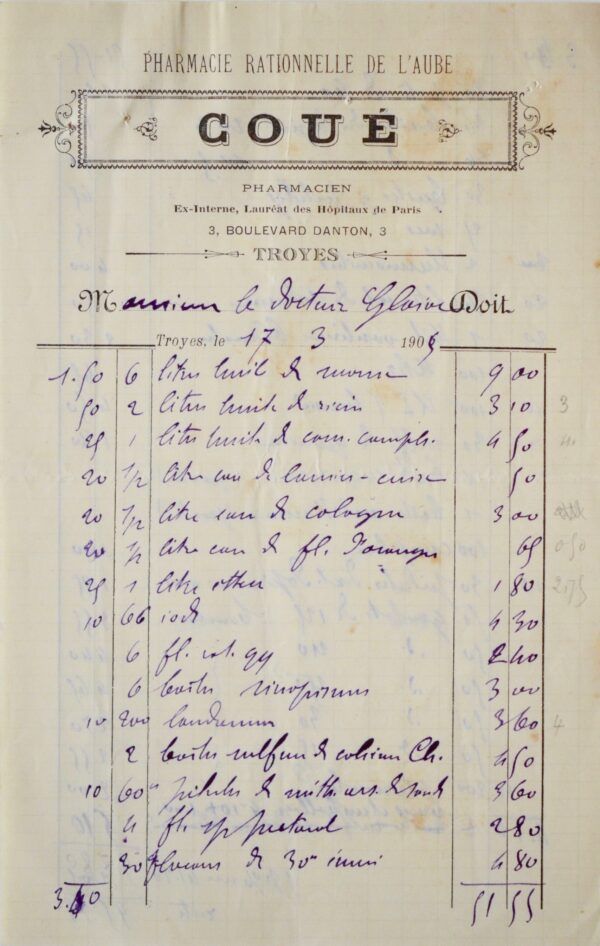 PHARMACIE RATIONNELLE DE L'AUBE
COUÉ
PHARMACIEN
Ex-Interne, Lauréat des Hôpitaux de Paris
3, BOULEVARD DANTON, 3
TROYES
Monsieur le docteur Doit
Troyes, le 17 3 190
1.50 6 litres huile de morue 9 00
50 2 litres huile de ricin 3 10 3
25 1 litre huile de cam. camph. 4 50
20 1/2 litre eau de laurier-cerise 50
20 1/2 litre eau de cologne 3 00
20 1/2 litre eau de fl. d'oranger 65 0 50
25 1 litre ether 1 80
10 66 iode 4 30
6 fl. 2 40
6 boites sinapismes 3 00
10 200 laudanum 3 60 4
2 boites sulfure de calcium Ch. 4 50
10 60 pilules de méth. ars. de soude 3 60
4 fl. sp pectoral 2 80
30 flacons de 30 4 80
3. 51 55